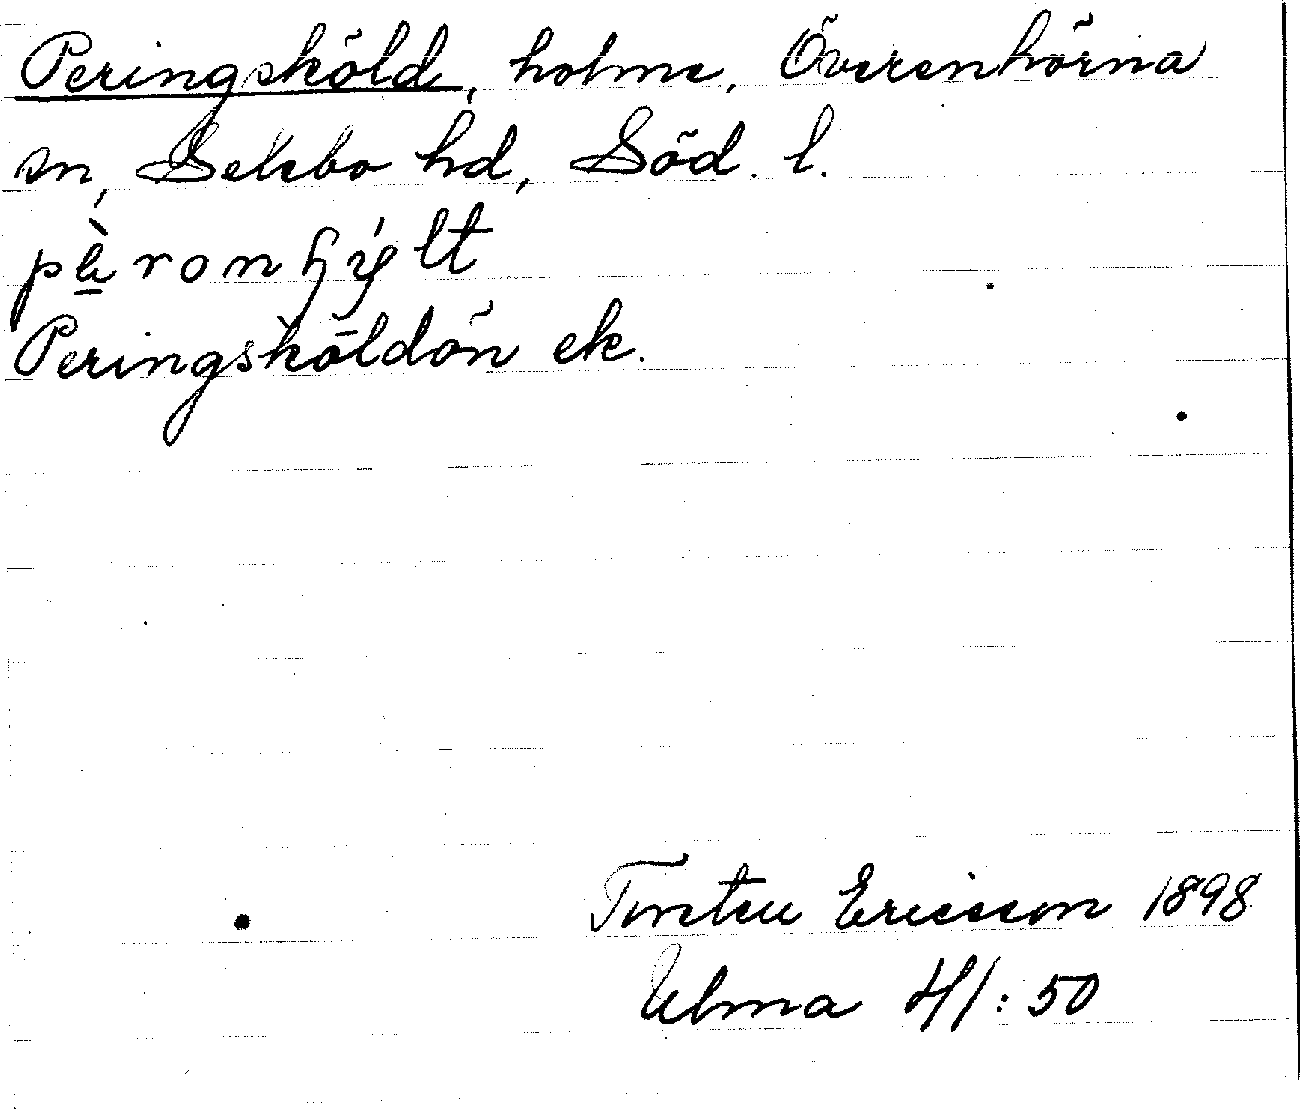 Peringsköld, holme, Överenhörna
sn, Selebo hd, Söd. l.
Peringsköldön ek.
Torsten Ericsson 1898
Ulma 41:50